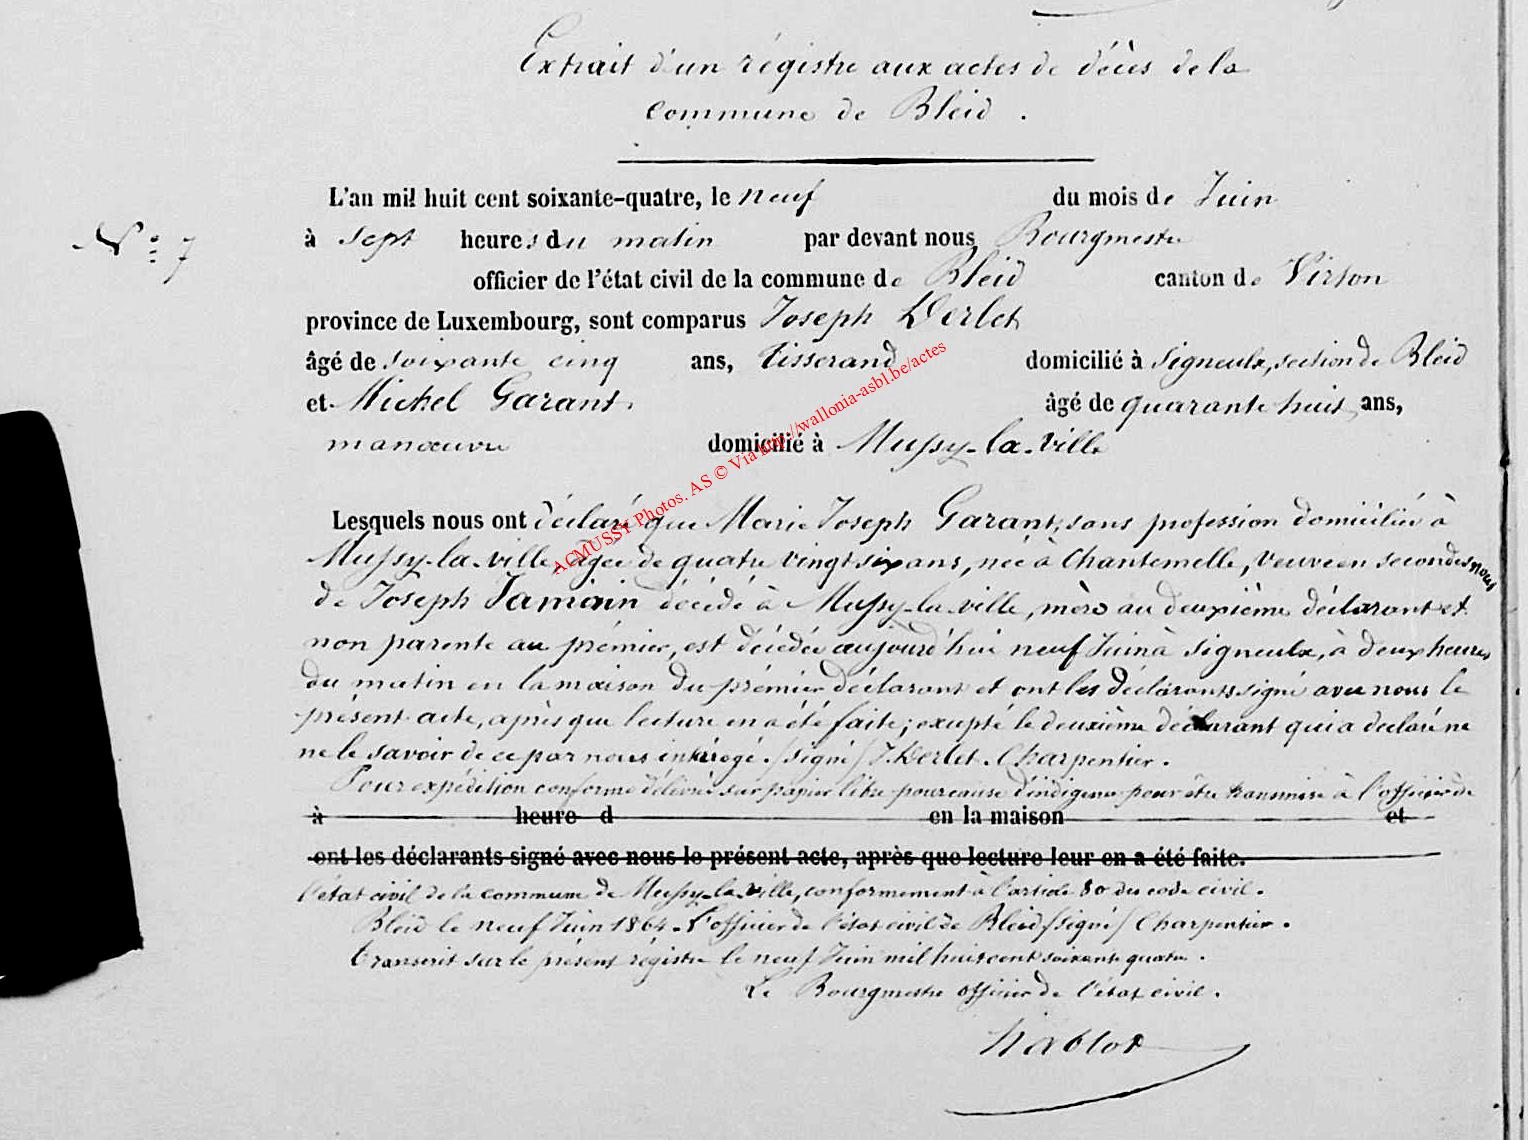 Extrait d'un régistre aux actes de décès de la
commune de Bleid .
L'an mil huit cent soixante-quatre, le neuf du mois de Juin
N° 7
à sept heures du matin par devant nous Bourgmestre
officier de l'état civil de la commune de Bleid canton de Virton
province de Luxembourg, sont comparus Joseph Derlet
âgé de soixante cinq ans, tisserand domicilié à Signeulx, section de Bleid
et Michel Garant. âgé de quarante huit ans,
manœuvre domicilié à Mussy-la-ville
Lesquels nous ont déclaré que Marie Joseph Garant, sans profession domiciliée à
Mussy-la-ville, âgée de quatre vingt six ans, née à Chantemelle, veuve en secondes noces
de Joseph Jamin décédé à Mussy-la-ville, mère au deuxième déclarant et
non parente au prémier, est décédée aujourd'hui neuf Juin à Signeulx, à deux heures
du matin en la maison du prémier déclarant et ont les déclarants signé avec nous le
présent acte, après que lecture en a été faite; excepté le deuxième déclarant qui a declaré ne
ne le savoir de ce par nous intérogé. /signé/ J. Derlet. Charpentier.
Pour expédition conforme délivrée sur papier libre pour cause d'indigence pour être transmise à l'officier de
à heure d en la maison et
ont les déclarants signé avec nous le présent acte, après que lecture leur en a été faite.
l'état civil de la commune de Mussy-la-ville, conformement à l'article 80 du code civil.
Bleid le neuf Juin 1864. L'officier de l'état civil de Bleid /signé/ Charpentier.
transcrit sur le présent régistre le neuf Juin mil huit cent soixante quatre.
Le Bourgmestre officier de l'état civil.
ACMUSSY Photos. AS © Via http://wallonia-asbl.be/actes